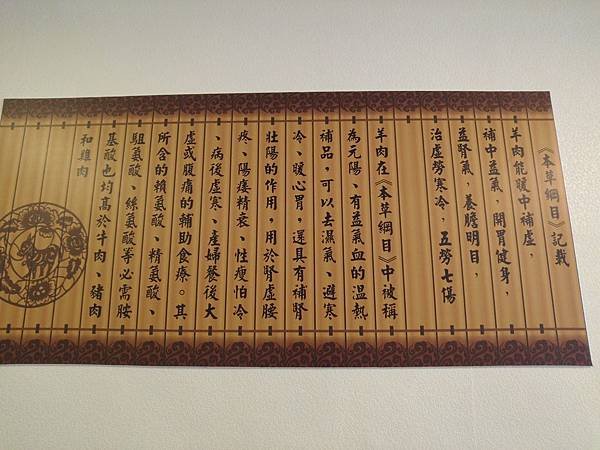 《本草綱目》記載
羊肉能暖中補虛，
補中益氣，開胃健身，
益腎氣，養膽明目，
治虛勞寒冷，五勞七傷
羊肉在《本草綱目》中被稱
為元陽、有益氣血的溫熱
補品，可以去濕氣、避寒
冷、暖心胃，還具有補腎
壯陽的作用，用於腎虛腰
疼、陽痿精衰、性瘦怕冷
、病後虛寒、產婦餐後大
虛或腹痛的輔助食療。其
所含的賴氨酸、精氨酸、
駔氨酸、絲氨酸等必需胺
基酸也均高於牛肉、豬肉
和雞肉